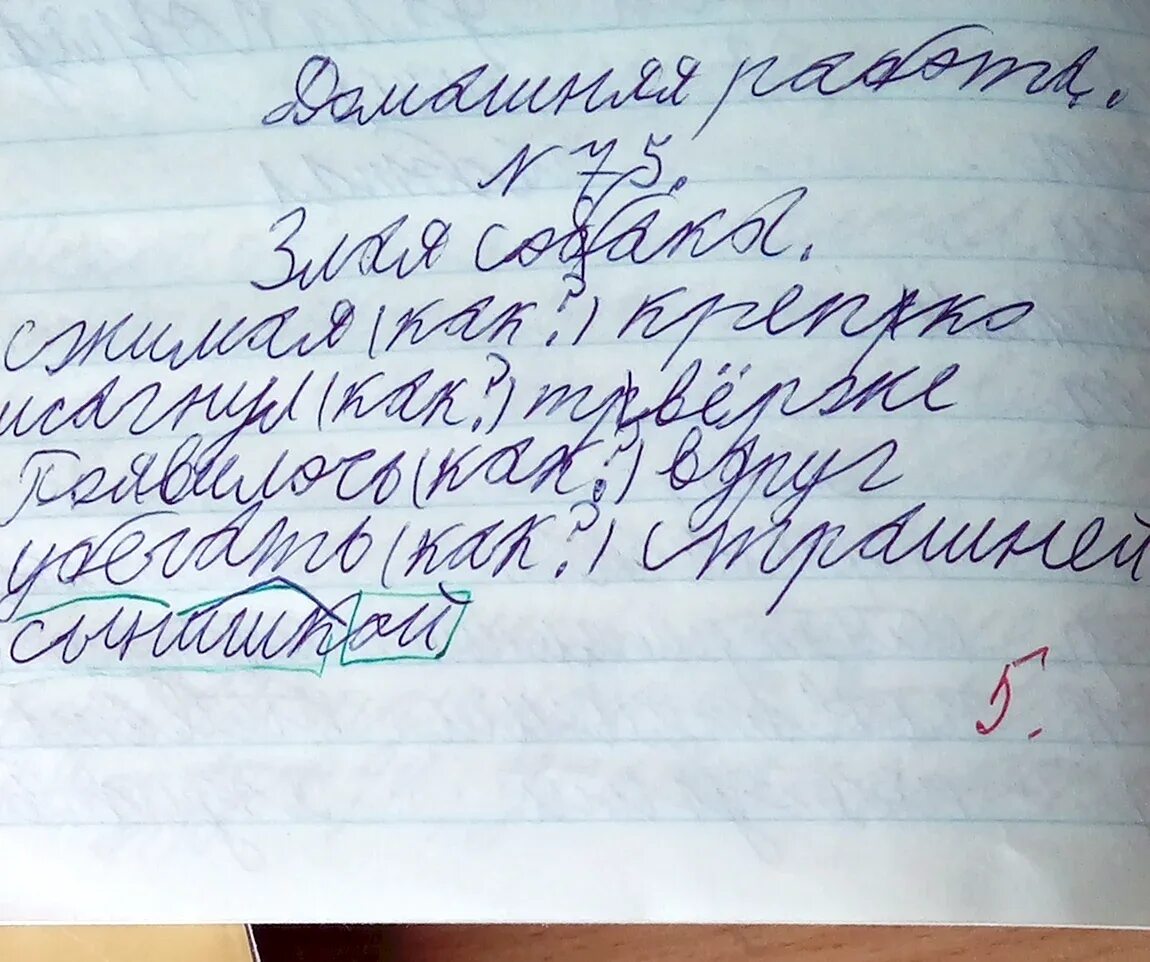 Домашняя работа.
N 75.
Злая собака.
сжимая (как?) крепко
шагнул (как?) твёрже
Появилось (как?) вдруг
убегать (как?) страшней
сынишкой
5.